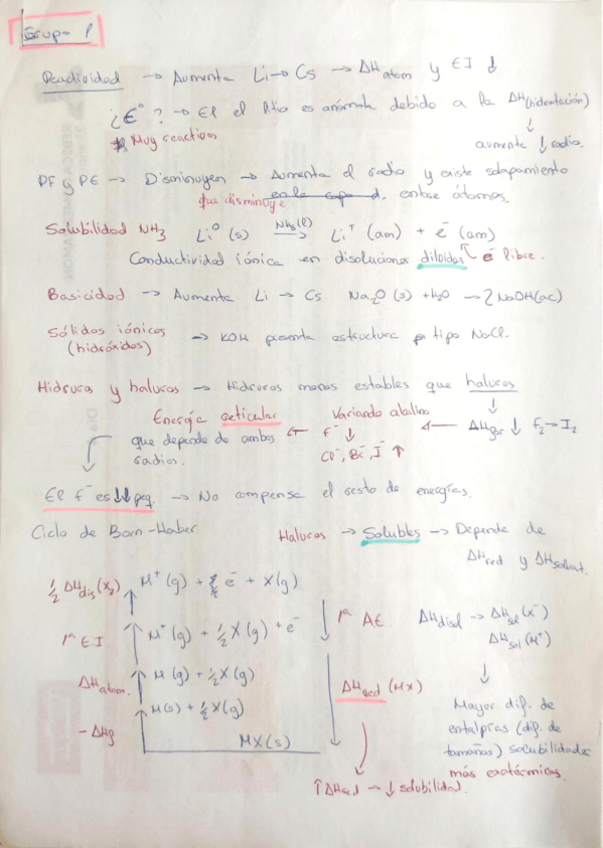 Grupo 1
Reactividad → Aumenta Li → Cs → ΔHatom y EI ↓
¿E° ? → El del litio es anómalo debido a la ΔH(hidratación)
Muy reactivos
aumenta ↓ radio.
PF y PE → Disminuyen → Aumenta el radio y existe solapamiento
que disminuye en la capa d. entre átomos.
Solubilidad NH3 Li⁰ (s) NH3(l) → Li⁺ (am) + e⁻ (am)
Conductividad iónica en disoluciones diluidas e⁻ libre.
Basicidad → Aumenta Li → Cs Na2O (s) + H2O → 2NaOH(ac)
Sólidos iónicos → KOH presenta estructura tipo NaCl.
(hidróxidos)
Hidruros y haluros → Hidruros menos estables que haluros
Energía reticular ← Variando alcalino ← ΔHf ↓ F2 → I2
que depende de ambos F⁻ ↓
radios. Cl⁻, Br⁻, I⁻ ↑
El F⁻ es ↓↓ peq. → No compensa el resto de energías.
Ciclo de Born-Haber Haluros → Solubles → Depende de
ΔHred y ΔHsolvat.
½ ΔHdis(X2) M⁺(g) + e⁻ + X(g)
1ª EI M⁺(g) + ½X(g) + e⁻ 1ª AE ΔHdisol → ΔHsol(X⁻)
ΔHsol(M⁺)
ΔHatom. M(g) + ½X(g)
ΔHred (MX)
M(s) + ½X(g)
-ΔHf
MX(s)
Mayor dif. de
entalpías (dif. de
tamaños) solubilidades
más exotérmicas.
↑ΔHred → ↓ solubilidad.